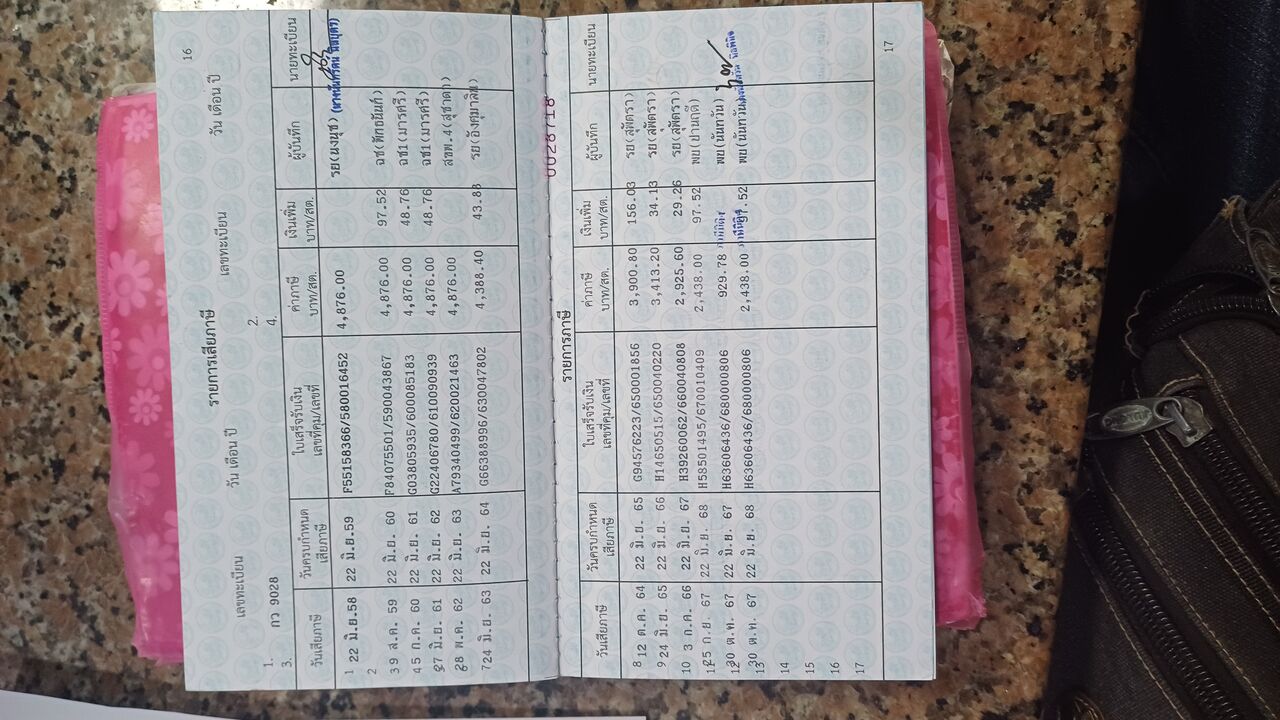 16
รายการเสียภาษี
เลขทะเบียน วัน เดือน ปี เลขทะเบียน วัน เดือน ปี
1. กว 9028 2.
3. 4.
วันเสียภาษี วันครบกำหนดเสียภาษี ใบเสร็จรับเงิน เลขที่คุม/เลขที่ ค่าภาษี บาท/สต. เงินเพิ่ม บาท/สต. ผู้บันทึก นายทะเบียน
1 22 มิ.ย.58 22 มิ.ย.59 F55158366/580016452 4,876.00 รย(นงนุช)
2
3 9 ส.ค. 59 22 มิ.ย. 60 F84075501/590043867 4,876.00 97.52 ฉช(พิทอนันท์)
4 5 ก.ค. 60 22 มิ.ย. 61 G03805935/600085183 4,876.00 48.76 ฉช1(มารศรี)
27 มิ.ย. 61 22 มิ.ย. 62 G22406780/610090939 4,876.00 48.76 ฉช1(มารศรี)
28 พ.ค. 62 22 มิ.ย. 63 A79340499/620021463 4,876.00 สขพ.4(สุชาดา)
7 24 มิ.ย. 63 22 มิ.ย. 64 G66388996/630047802 4,388.40 43.88
0028718
รายการภาษี
วันเสียภาษี วันครบกำหนดเสียภาษี ใบเสร็จรับเงิน เลขที่คุม/เลขที่ ค่าภาษี บาท/สต. เงินเพิ่ม บาท/สต. ผู้บันทึก นายทะเบียน
8 12 ต.ค. 64 22 มิ.ย. 65 G94576223/650001856 3,900.80 156.03 รย(สุพัตรา)
9 24 มิ.ย. 65 22 มิ.ย. 66 H14650515/650040220 3,413.20 34.13 รย(สุพัตรา)
10 3 ก.ค. 66 22 มิ.ย. 67 H39260062/660040808 2,925.60 29.26 รย(สุพัตรา)
25 ก.ย. 67 22 มิ.ย. 68 H58501495/670010409 2,438.00 97.52 พย(ปานฤดี)
30 ต.ค. 67 22 มิ.ย. 67 H63606436/680000806 929.78 พย(นันทวัน)
13 30 ต.ค. 67 22 มิ.ย. 68 H63606436/680000806 2,438.00 พย(นันทวัน)
14
15
16
17
17